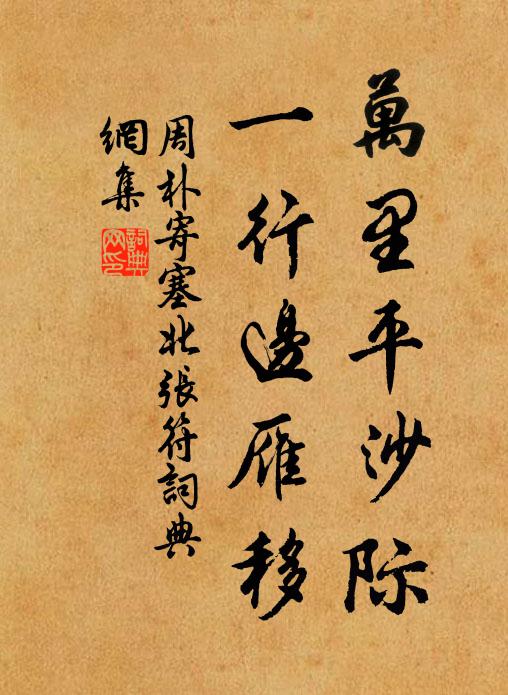 萬里平沙际
一行邊雁移
周朴寄塞北張符詞典
網集
詞典
网印